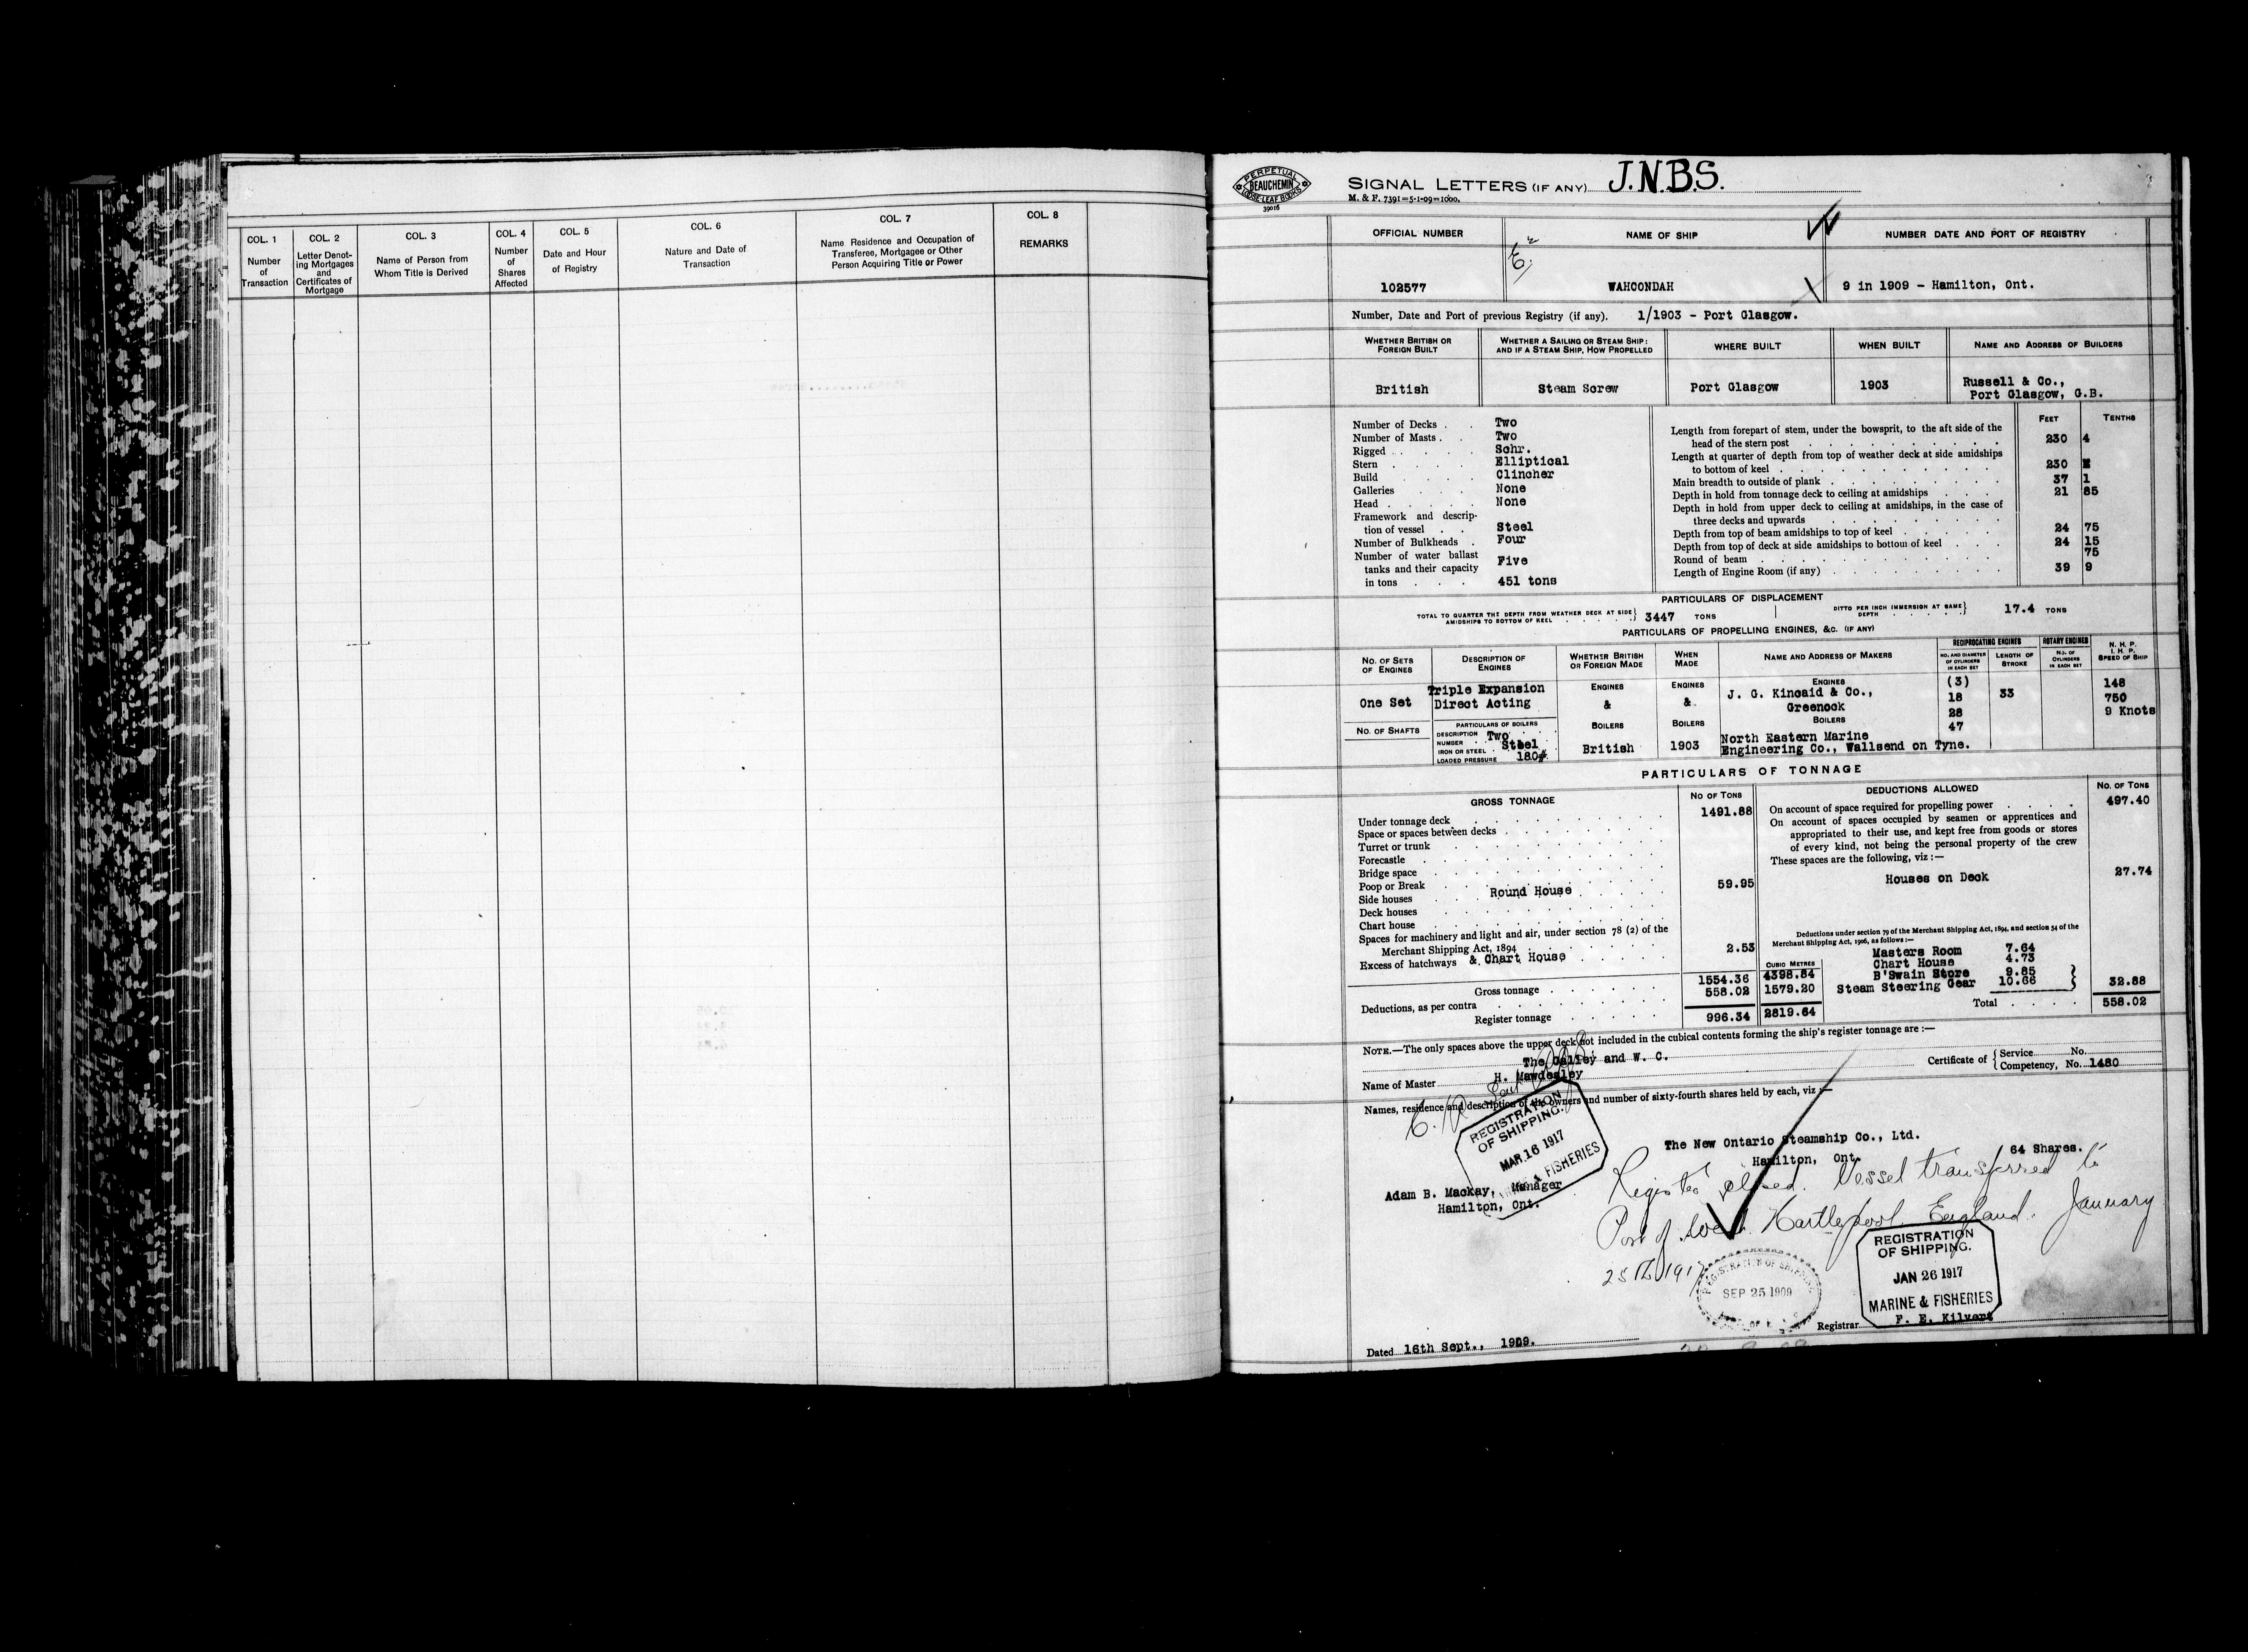 COL. 1
Number
of
Transaction
COL. 2
Letter Denot-
ing Mortgages
and
Certificates of
Mortgage
COL. 3
Name of Person from
Whom Title is Derived
COL. 4
Number
of
Shares
Affected
COL. 5
Date and Hour
of Registry
COL. 6
Nature and Date of
Transaction
COL. 7
Name Residence and Occupation of
Transferee, Mortgagee or Other
Person Acquiring Title or Power
COL. 8
REMARKS
PERPETUAL
BEAUCHEMIN
LOOSE LEAF BOOKS
39016
SIGNAL LETTERS (IF ANY) J.N.B.S.
M. & F. 7391=5-1-09=1000.
OFFICIAL NUMBER
NAME OF SHIP
NUMBER DATE AND PORT OF REGISTRY
102577
WAHCONDAH
9 in 1909 - Hamilton, Ont.
Number, Date and Port of previous Registry (if any). 1/1903 - Port Glasgow.
WHETHER BRITISH OR
FOREIGN BUILT
WHETHER A SAILING OR STEAM SHIP:
AND IF A STEAM SHIP, HOW PROPELLED
WHERE BUILT
WHEN BUILT
NAME AND ADDRESS OF BUILDERS
British
Steam Screw
Port Glasgow
1903
Russell & Co.,
Port Glasgow, G.B.
Number of Decks . . Two
Number of Masts . . Two
Rigged . . . . Schr.
Stern . . . . Elliptical
Build . . . . Clincher
Galleries . . . None
Head . . . . None
Framework and descrip-
tion of vessel . . Steel
Number of Bulkheads . Four
Number of water ballast
tanks and their capacity Five
in tons . . . 451 tons
FEET TENTHS
Length from forepart of stem, under the bowsprit, to the aft side of the
head of the stern post 230 4
Length at quarter of depth from top of weather deck at side amidships
to bottom of keel 230
Main breadth to outside of plank 37 1
Depth in hold from tonnage deck to ceiling at amidships 21 85
Depth in hold from upper deck to ceiling at amidships, in the case of
three decks and upwards
Depth from top of beam amidships to top of keel 24 75
Depth from top of deck at side amidships to bottom of keel 24 15
Round of beam 75
Length of Engine Room (if any) 39 9
PARTICULARS OF DISPLACEMENT
TOTAL TO QUARTER THE DEPTH FROM WEATHER DECK AT SIDE
AMIDSHIPS TO BOTTOM OF KEEL } 3447 TONS
DITTO PER INCH IMMERSION AT SAME
DEPTH } 17.4 TONS
PARTICULARS OF PROPELLING ENGINES, &C. (IF ANY)
No. OF SETS
OF ENGINES
DESCRIPTION OF
ENGINES
WHETHER BRITISH
OR FOREIGN MADE
WHEN
MADE
NAME AND ADDRESS OF MAKERS
RECIPROCATING ENGINES
NO. AND DIAMETER
OF CYLINDERS
IN EACH SET
LENGTH OF
STROKE
ROTARY ENGINES
No. OF
CYLINDERS
IN EACH SET
N. H. P.
I. H. P.
SPEED OF SHIP
One Set
Triple Expansion
Direct Acting
ENGINES
&
BOILERS
British
ENGINES
&
BOILERS
1903
ENGINES
J. G. Kincaid & Co.,
Greenock
BOILERS
North Eastern Marine
Engineering Co., Wallsend on Tyne.
(3)
18
28
47
33
148
750
9 Knots
No. OF SHAFTS
PARTICULARS OF BOILERS
DESCRIPTION
NUMBER Two
IRON OR STEEL Steel
LOADED PRESSURE 180#
PARTICULARS OF TONNAGE
GROSS TONNAGE
No OF TONS
Under tonnage deck 1491.88
Space or spaces between decks
Turret or trunk
Forecastle
Bridge space
Poop or Break
Side houses Round House 59.95
Deck houses
Chart house
Spaces for machinery and light and air, under section 78 (2) of the
Merchant Shipping Act, 1894
Excess of hatchways & Chart House 2.53
CUBIC METRES
Gross tonnage 1554.36 4398.84
Deductions, as per contra 558.02 1579.20
Register tonnage 996.34 2819.64
DEDUCTIONS ALLOWED
No. OF TONS
On account of space required for propelling power 497.40
On account of spaces occupied by seamen or apprentices and
appropriated to their use, and kept free from goods or stores
of every kind, not being the personal property of the crew
These spaces are the following, viz :—
Houses on Deck 27.74
Deductions under section 79 of the Merchant Shipping Act, 1894, and section 54 of the
Merchant Shipping Act, 1906, as follows :—
Masters Room 7.64
Chart House 4.73
B'Swain Store 9.85
Steam Steering Gear 10.66 } 32.88
Total 558.02
NOTE.—The only spaces above the upper deck not included in the cubical contents forming the ship's register tonnage are :—
The Galley and W. C.
Name of Master H. Mawdesley
Certificate of { Service No.
Competency, No. 1480
Names, residence and description of the owners and number of sixty-fourth shares held by each, viz :—
REGISTRATION
OF SHIPPING.
MAR 16 1917
& FISHERIES
The New Ontario Steamship Co., Ltd.
Hamilton, Ont.
64 Shares.
Adam B. Mackay, Manager
Hamilton, Ont.
Register closed. Vessel transferred to
Port of West Hartlepool England. January
25th 1917
REGISTRATION OF SHIPPING
SEP 25 1909
REGISTRATION
OF SHIPPING.
JAN 26 1917
MARINE & FISHERIES
Registrar F. E. Kilvert
Dated 16th Sept., 1909.